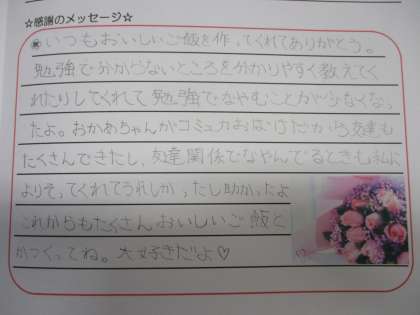 ☆感謝のメッセージ☆
いつもおいしいご飯を作ってくれてありがとう。
勉強で分からないところを分かりやすく教えてく
れたりしてくれて勉強でなやむことが少なくなっ
たよ。おかあちゃんがコミュ力おばけだから友達も
たくさんできたし、友達関係でなやんでるときも私に
よりそってくれてうれしかったし助かったよ
これからもたくさんおいしいご飯と
かつくってね。大好きだよ♡